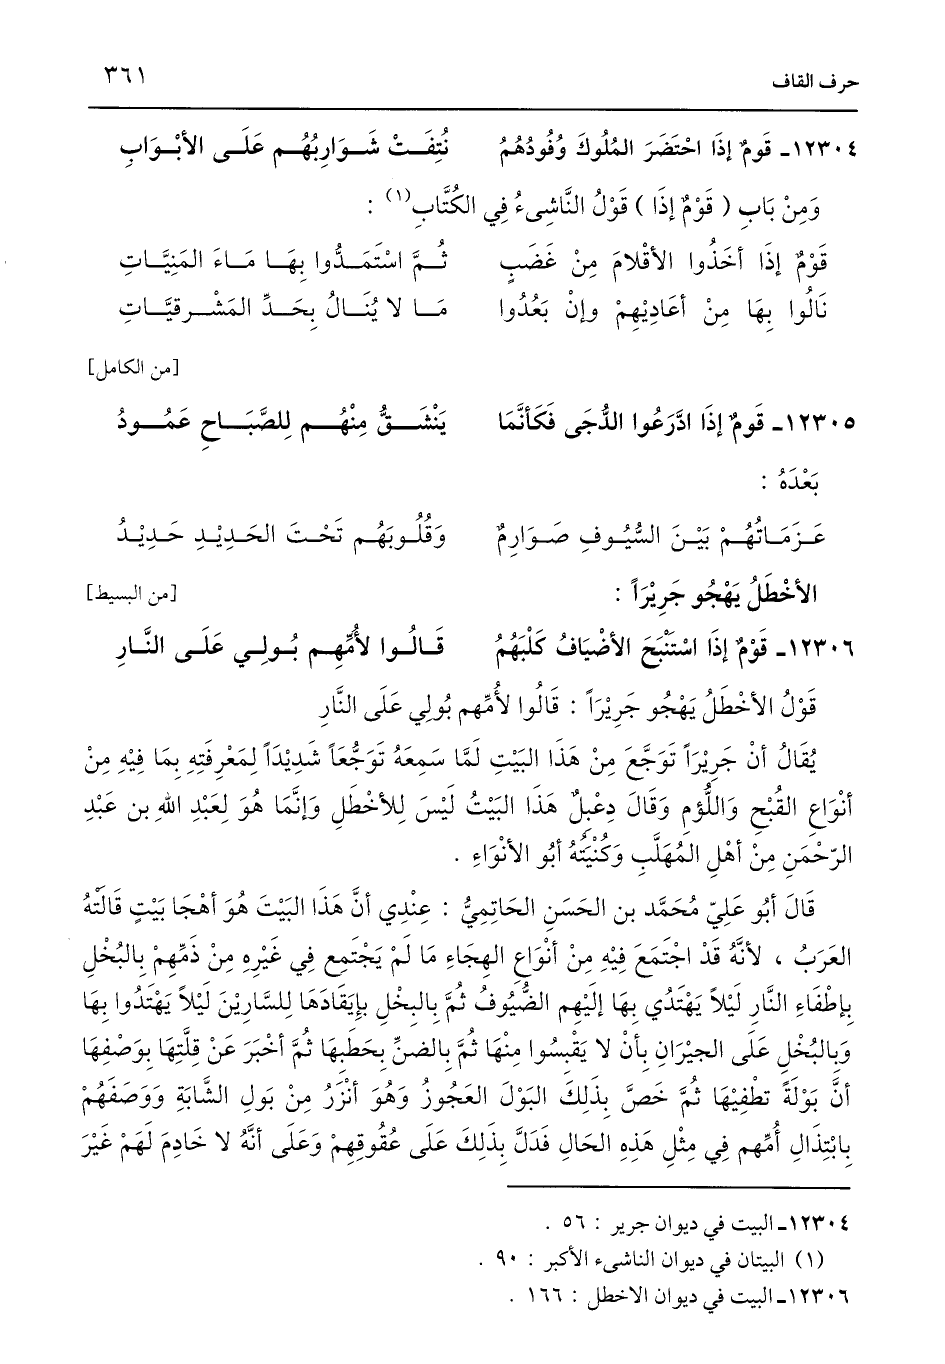 حرف القاف ٣٦١
١٢٣٠٤ـ قَومٌ إذَا احْتَضَرَ المُلُوكَ وُفُودُهُمُ نُتِفَتْ شَوَارِبُهُم عَلَى الأَبْوَابِ
وَمِنْ بَابِ ( قَوْمٌ إذَا ) قَوْلُ النَّاشِىءُ فِي الكُتَّابِ(١) :
قَوْمٌ إذَا أخَذُوا الأقْلَامَ مِنْ غَضَبٍ ثُمَّ اسْتَمَدُّوا بِهَا مَاءَ المَنِيَّاتِ
نَالُوا بِهَا مِنْ أعَادِيْهِمْ وإنْ بَعُدُوا مَا لا يُنَالُ بِحَدِّ المَشْرِقِيَّاتِ
[من الكامل]
١٢٣٠٥ـ قَومٌ إذَا ادَّرَعُوا الدُّجَى فَكَأنَّمَا يَنْشَقُّ مِنْهُم لِلصَّبَاحِ عَمُودُ
بَعْدَهُ :
عَزَمَاتُهُمْ بَيْنَ السُّيُوفِ صَوَارِمٌ وَقُلُوبَهُم تَحْتَ الحَدِيْدِ حَدِيْدُ
الأخْطَلُ يَهْجُو جَرِيْرَاً : [من البسيط]
١٢٣٠٦ـ قَوْمٌ إذَا اسْتَنْبَحَ الأضْيَافُ كَلْبَهُمُ قَالُوا لأُمِّهِم بُولِي عَلَى النَّارِ
قَوْلُ الأخْطَلُ يَهْجُو جَرِيْرَاً : قَالُوا لأُمِّهِم بُولِي عَلَى النَّارِ
يُقَالُ أنْ جَرِيْرَاً تَوَجَّعَ مِنْ هَذَا البَيْتِ لَمَّا سَمِعَهُ تَوَجُّعَاً شَدِيْدَاً لِمَعْرِفَتِهِ بِمَا فِيْهِ مِنْ
أنْوَاعِ القُبْحِ وَاللُّؤمِ وَقَالَ دِعْبِلٌ هَذَا البَيْتُ لَيْسَ لِلأخْطَلِ وَإنَّمَا هُوَ لِعَبْدِ اللهِ بن عَبْدِ
الرّحْمَنِ مِنْ أهْلِ المُهَلَّبِ وَكُنْيَتُهُ أبُو الأنْوَاءِ .
قَالَ أبُو عَلِيّ مُحَمَّد بن الحَسَنِ الحَاتِمِيُّ : عِنْدِي أنَّ هَذَا البَيْتَ هُوَ أهْجَا بَيْتٍ قَالَتْهُ
العَرَبُ ، لأنَّهُ قَدْ اجْتَمَعَ فِيْهِ مِنْ أنْوَاعِ الهِجَاءِ مَا لَمْ يَجْتَمِعِ فِي غَيْرِهِ مِنْ ذَمِّهِمْ بِالبُخْلِ
بِإطْفَاءِ النَّارِ لَيْلَاً يَهْتَدُي بِهَا إلَيْهِم الضُّيُوفُ ثُمَّ بِالبخْلِ بِإيقَادَهَا لِلسَّارِيْنَ لَيْلَاً يَهْتَدُوا بِهَا
وَبِالبُخْلِ عَلَى الجيْرَانِ بِأنْ لا يَقْبِسُوا مِنْهَا ثُمَّ بِالضنِّ بِحَطَبِهَا ثُمَّ أخْبَرَ عَنْ قِلَّتِهَا بِوَصْفِهَا
أنَّ بَوْلَةً تطْفِيْهَا ثُمَّ خَصَّ بِذَلِكَ البَوْلَ العَجُوزُ وَهُوَ أنْزَرُ مِنْ بَولِ الشَّابَةِ وَوَصَفَهُمْ
بِابْتِذَالِ أُمِّهم فِي مِثْلِ هَذِهِ الحَالِ فَدَلَّ بِذَلِكَ عَلَى عُقُوقِهِمْ وَعَلَى أنَّهُ لا خَادِمَ لَهُمْ غَيْرَ
١٢٣٠٤ـ البيت في ديوان جرير : ٥٦ .
(١) البيتان في ديوان الناشىء الأكبر : ٩٠ .
١٢٣٠٦ـ البيت في ديوان الاخطل : ١٦٦ .